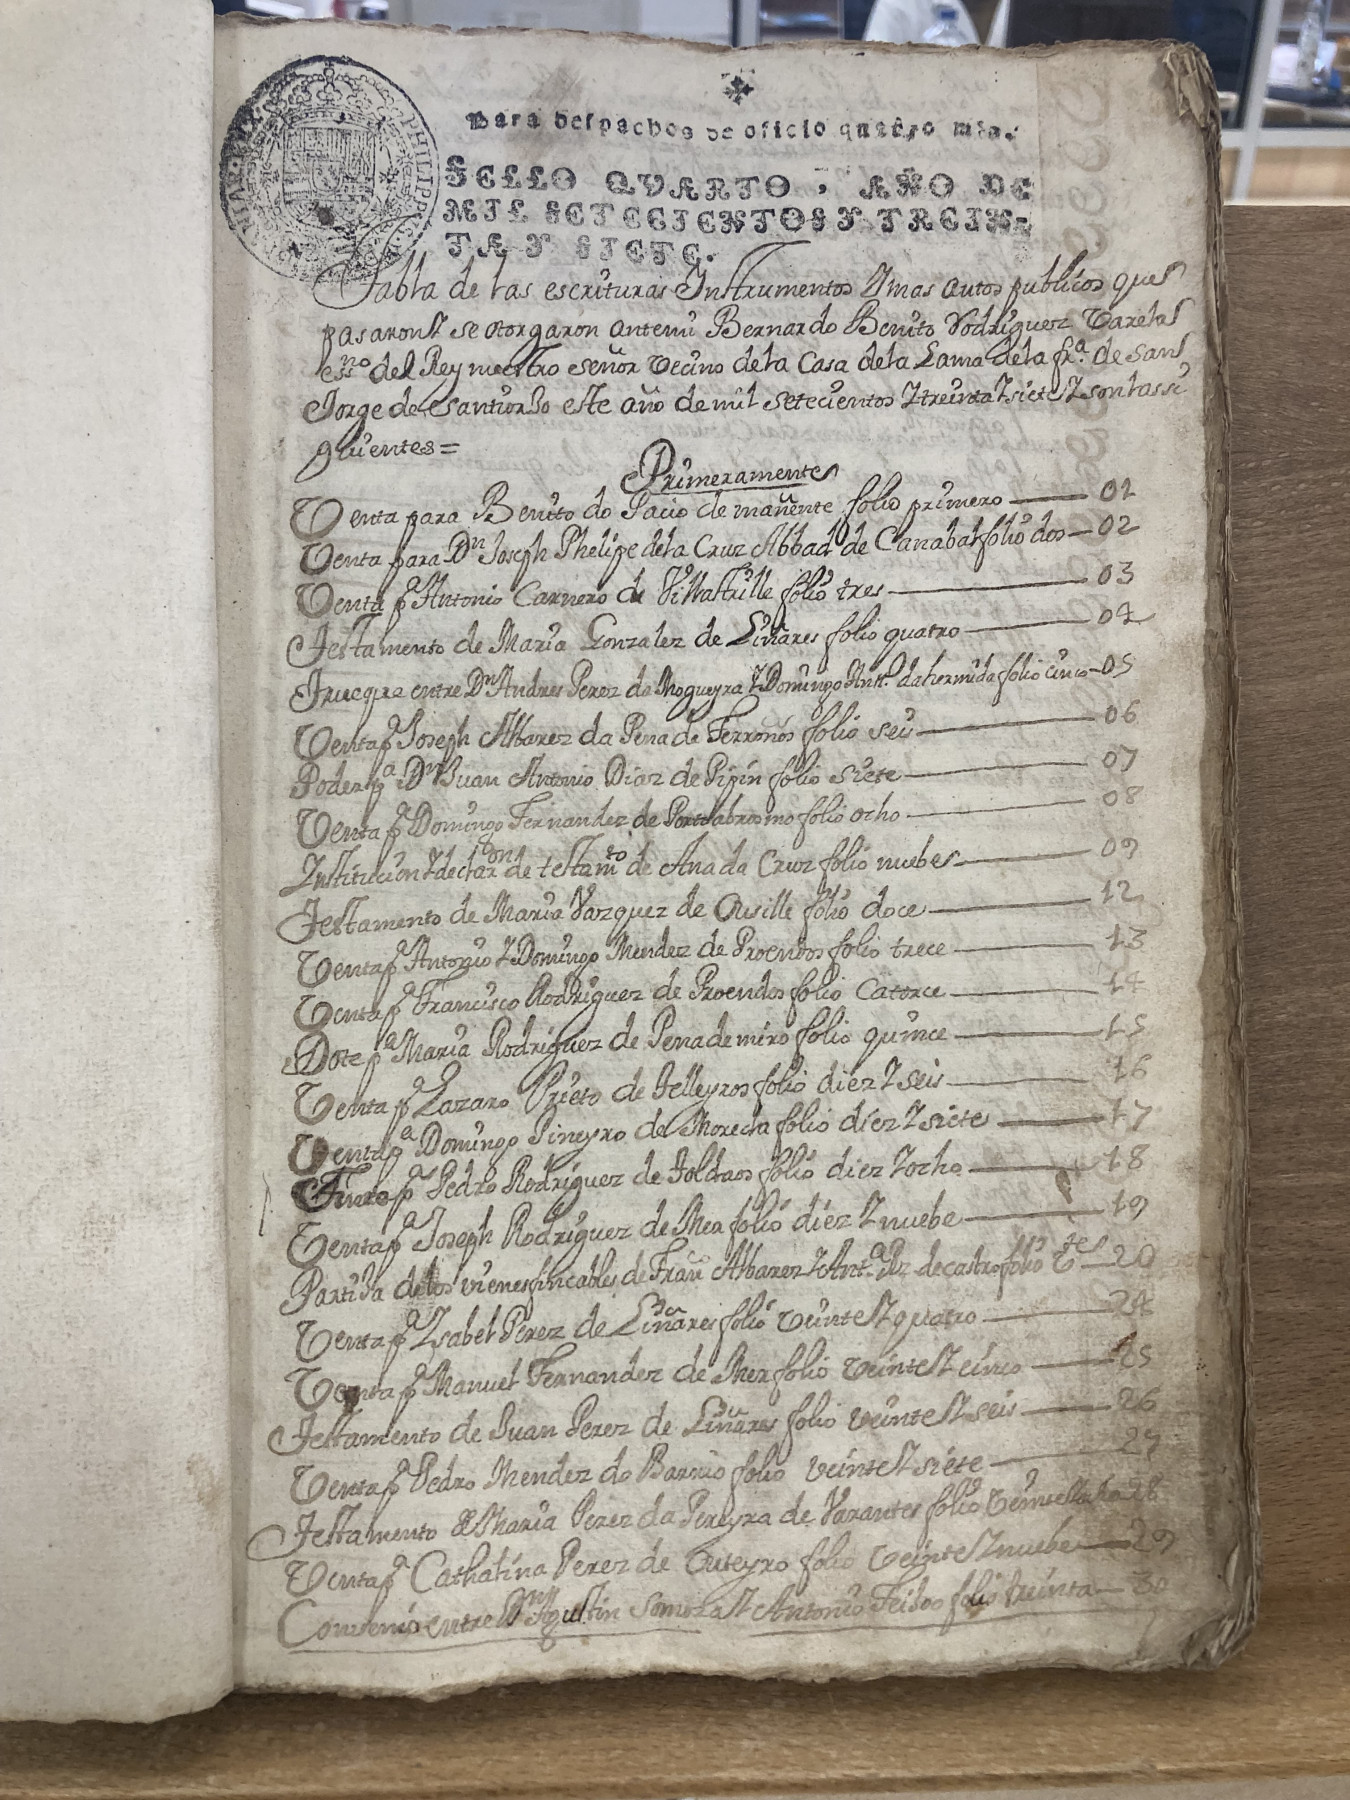 Para despachos de oficio quatro mrs.
SELLO QVARTO, AÑO DE
MIL SETECIENTOS Y TREIN-
TA Y SIETE.
Tabla de las escrituras Instrumentos Y mas autos publicos que
pasaron Y se otorgaron antemi Bernardo Benito Rodriguez Varela
esno del Rey nuestro señor vecino dela Casa dela Lama dela fra. de San
Jorge de Santiorxo este año de mil setecientos Y treinta Y siete Y son las si
guientes =
Primeramente
Venta para Benito do Pacio de mañente folio primero 01
Venta para Dn Joseph Phelipe dela Cruz Abbad de Canabal folio dos 02
Venta pa Antonio Carnero de Villastrille folio tres 03
Testamento de Maria Gonzalez de Liñares folio quatro 04
Trueque entre Dn Andres Perez da Nogueyra Y Domingo Antt. da hermida folio cinco 05
Venta pa Joseph Albarez da Pena de Ferroños folio seis 06
Poder pa Dn Juan Antonio Diaz de Pipin folio siete 07
Venta pa Domingo Fernandez de Portabrosmo folio ocho 08
Institucion Y declaron de testamto de Ana da Cruz folio nuebe 09
Testamento de Maria Vazquez de Ousille folio doce 12
Venta pa Antonio Y Domingo Mendez de Proendos folio trece 13
Venta pa Francisco Rodriguez de Proendos folio Catorce 14
Dote pa Maria Rodriguez de Penademiro folio quince 15
Venta pa Lazaro Prieto de Telleyros folio diez Y seis 16
Venta pa Domingo Pineyro de Moreda folio diez Y siete 17
Fuero pa Pedro Rodriguez de Toldaos folio diez Y ocho 18
Venta pa Joseph Rodriguez de Mer folio diez Y nuebe 19
Partixa delos vienes fincables de Franco Albarez Y Anta Rz de castro folio Vte 20
Venta pa Ysabel Perez de Liñares folio veinte Y quatro 24
Venta pa Manuel Fernandez de Mer folio veinte Y cinco 25
Testamento de Juan Perez de Liñares folio veinte Y seis 26
Venta pa Pedro Mendez do Barrio folio veinte Y siete 27
Testamento de Maria Perez da Pereyra de Varantes folio Veinte Y ocho 28
Venta pa Cathalina Perez de Outeyro folio veinte Y nuebe 29
Convenio entre Dn Agustin Somoza Y Antonio Feixoo folio treinta 30